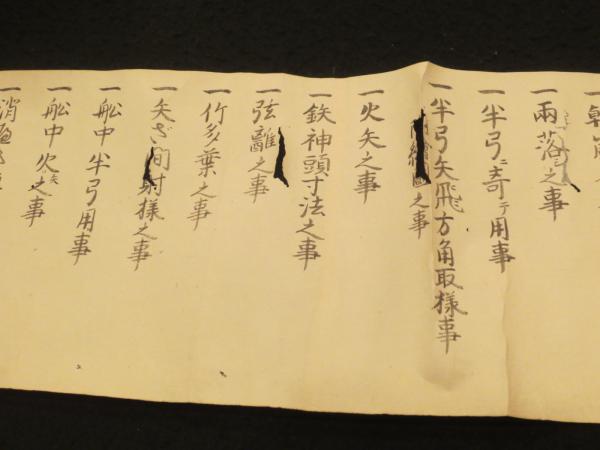 一 雨落之事
一 半弓ニ奇テ用事
一 半弓矢飛方角取様事
一 之事
一 火矢之事
一 鉄神頭寸法之事
一 弦離之事
一 竹多葉之事
一 矢ざ間射様之事
一 舩中半弓用事
一 舩中火矢之事
一 消